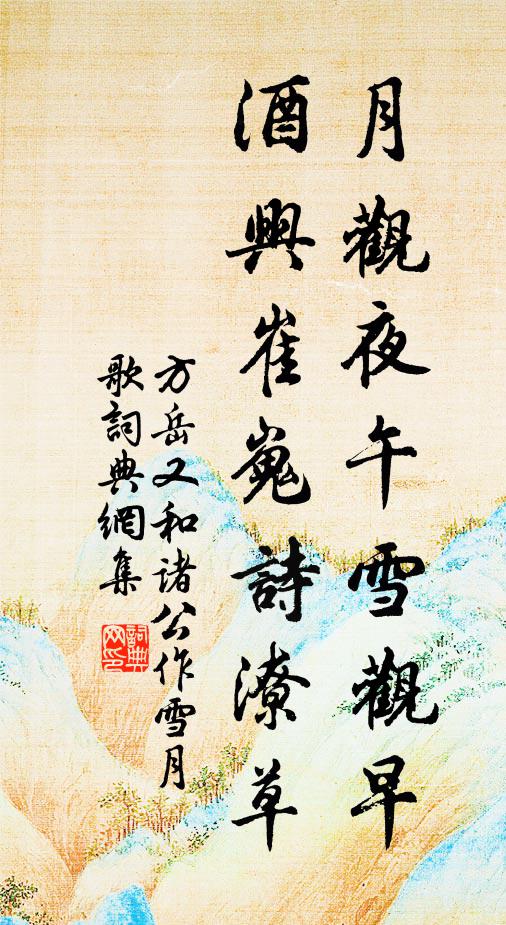 月觀夜午雪觀早
酒興崔嵬詩潦草
方岳又和诸公作雪月
歌詞典網集
詞典
网印